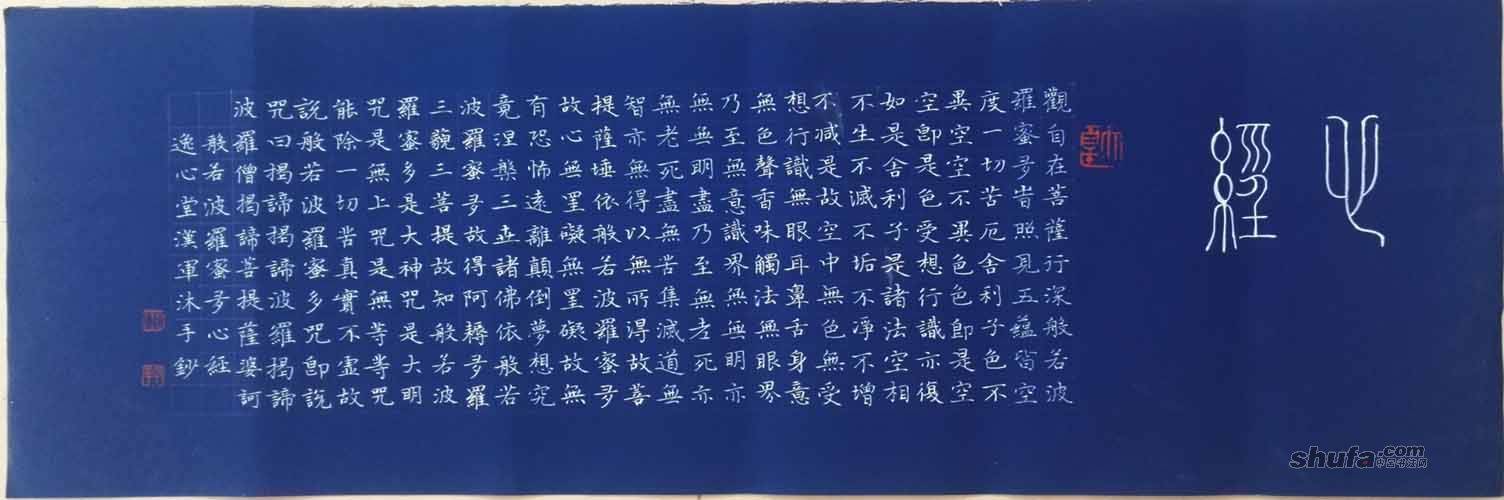 心經
觀自在菩薩行深般若波
羅蜜多旹照見五蘊皆空
度一切苦厄舍利子色不
異空空不異色色即是空
空即是色受想行識亦復
如是舍利子是諸法空相
不生不滅不垢不淨不增
不減是故空中無色無受
想行識無眼耳鼻舌身意
無色聲香味觸法無眼界
乃至無意識界無無明亦
無無明盡乃至無老死亦
無老死盡無苦集滅道無
智亦無得以無所得故菩
提薩埵依般若波羅蜜多
故心無罣礙無罣礙故無
有恐怖遠離顛倒夢想究
竟涅槃三世諸佛依般若
波羅蜜多故得阿耨多羅
三藐三菩提故知般若波
羅蜜多是大神咒是大明
咒是無上咒是無等等咒
能除一切苦真實不虛故
說般若波羅蜜多咒即說
咒曰揭諦揭諦波羅揭諦
波羅僧揭諦菩提薩婆訶
般若波羅蜜多心經
逸心堂漢軍沐手鈔
shufa.com
中国书法网